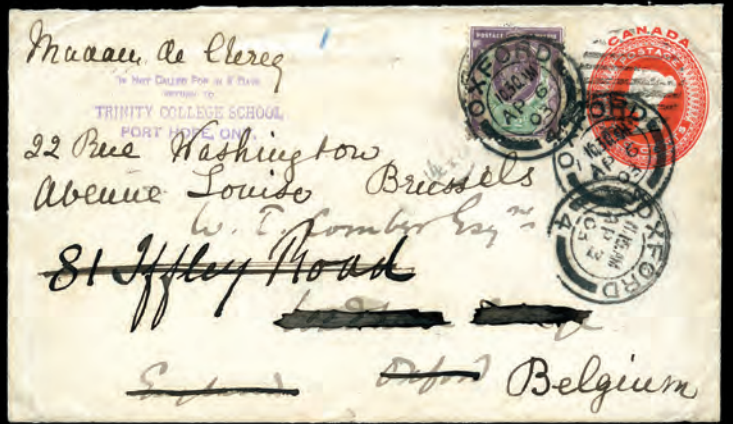 Madam de Clercq
IF NOT CALLED FOR IN 5 DAYS
RETURN TO
TRINITY COLLEGE SCHOOL
PORT HOPE, ONT.
22 Rue Washington
Avenue Louise Brussels
W. T. Comber Esq
81 Iffley Road
England Oxford Belgium
POSTAGE
CANADA
POSTAGE
OXFORD
10.30 AM
AP 6
03
OXFORD
10.30 AM
AP 6
03
OXFORD
11.15 AM
AP
03
4